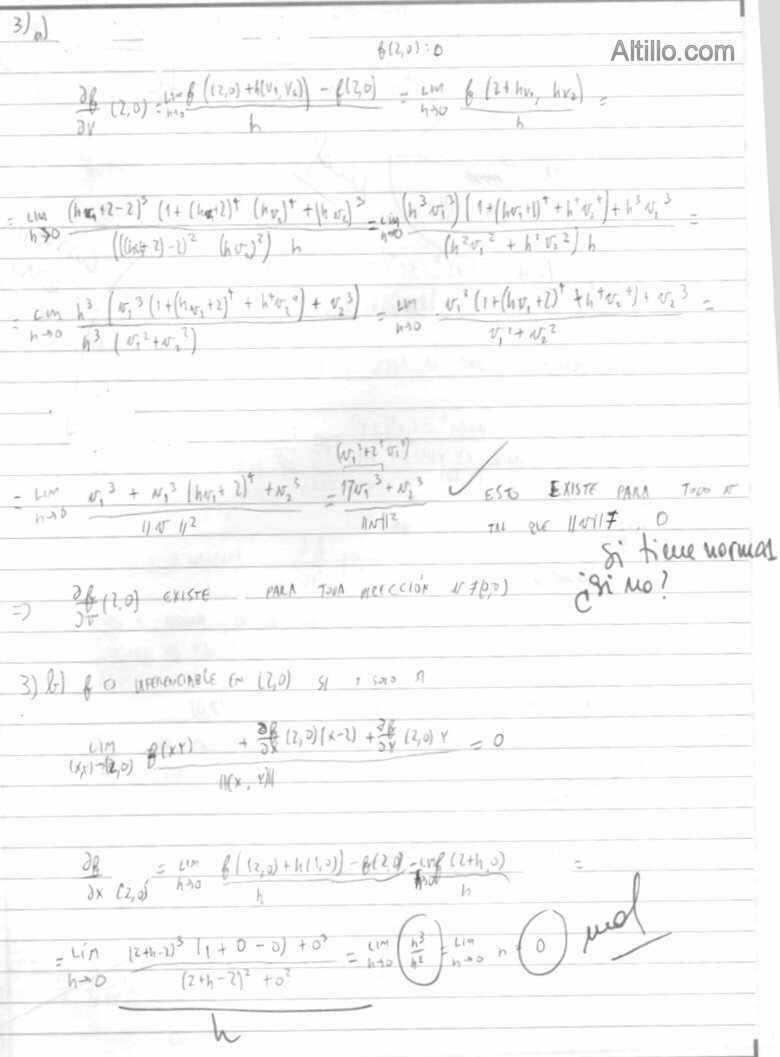 3) a)
f(2,0) = 0
Altillo.com
∂f/∂v (2,0) = lim h→0 (f((2,0) + h(v₁,v₂)) - f(2,0)) / h = lim h→0 f(2+hv₁, hv₂) / h =
= lim h→0 ((hv₁+2-2)³ (1 + (hv₁+2)⁴ (hv₂)⁴ + (hv₂)³) / ((((hv₁+2)-2)² (hv₂)²) h) = lim h→0 ((h³v₁³) (1 + (hv₁+1)⁴ + h⁴v₂⁴) + h³v₂³) / ((h²v₁² + h²v₂²) h) =
= lim h→0 h³ (v₁³ (1 + (hv₁+2)⁴ + h⁴v₂⁴) + v₂³) / (h³ (v₁² + v₂²)) = lim h→0 (v₁³ (1 + (hv₁+2)⁴ + h⁴v₂⁴) + v₂³) / (v₁² + v₂²) =
(v₁³+2⁴v₁³)
= lim h→0 (v₁³ + v₁³ (hv₁+2)⁴ + v₂³) / ||v||² = (17v₁³ + v₂³) / ||v||² ✓ ESTO EXISTE PARA TODO v
TAL QUE ||v|| ≠ 0
Si tiene norma 1
¿Si no?
=> ∂f/∂v (2,0) EXISTE PARA TODA DIRECCIÓN v ≠ (0,0)
3) b) f ES DIFERENCIABLE EN (2,0) SI Y SOLO SI
lim (x,y)→(2,0) (f(x,y) + ∂f/∂x (2,0)(x-2) + ∂f/∂y (2,0) y) / ||(x, y)|| = 0
∂f/∂x (2,0) = lim h→0 (f((2,0) + h(1,0)) - f(2,0)) / h = lim h→0 f(2+h,0) / h =
= lim h→0 (((2+h-2)³ (1 + 0 - 0) + 0³) / ((2+h-2)² + 0²)) / h = lim h→0 h³/h² = lim h→0 h = 0 mal